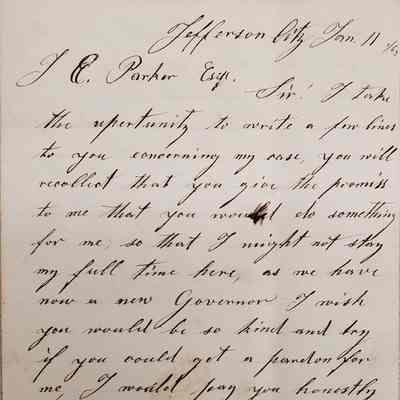 Jefferson City Jan. 11
J E. Parker Esq.
Sir! I take
the upertunity to write a few lines
to you concerning my case, you will
recollect that you give the promiss
to me that you would do something
for me, so that I might not stay
my full time here, as we have
now a new Governor I wish
you would be so kind and try
if you could get a pardon for
me, I would pay you honestly